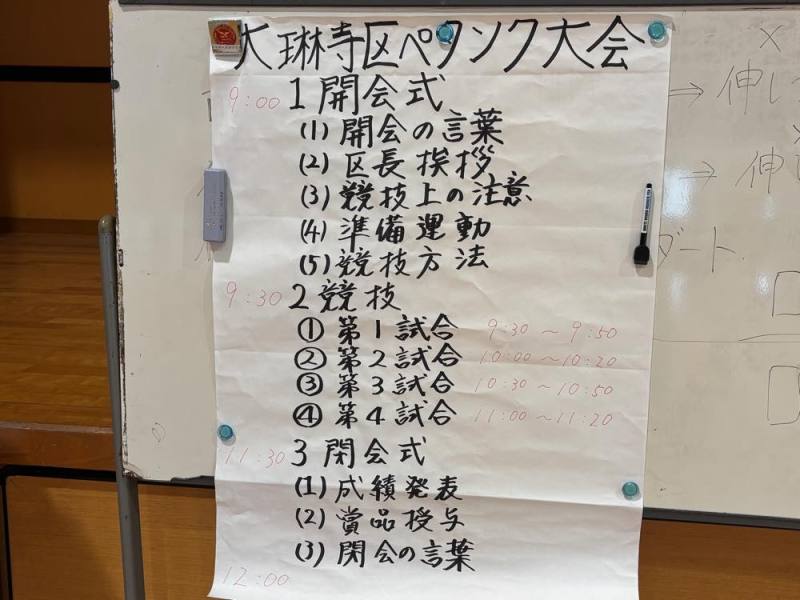 大琳寺区ペタンク大会
9:00 1 開会式
(1) 開会の言葉
(2) 区長挨拶
(3) 競技上の注意
(4) 準備運動
(5) 競技方法
9:30 2 競技
① 第1試合 9:30 ～ 9:50
② 第2試合 10:00 ～ 10:20
③ 第3試合 10:30 ～ 10:50
④ 第4試合 11:00 ～ 11:20
11:30 3 閉会式
(1) 成績発表
(2) 賞品授与
(3) 閉会の言葉
12:00
×
⇒ 伸し
→ 伸
ダート